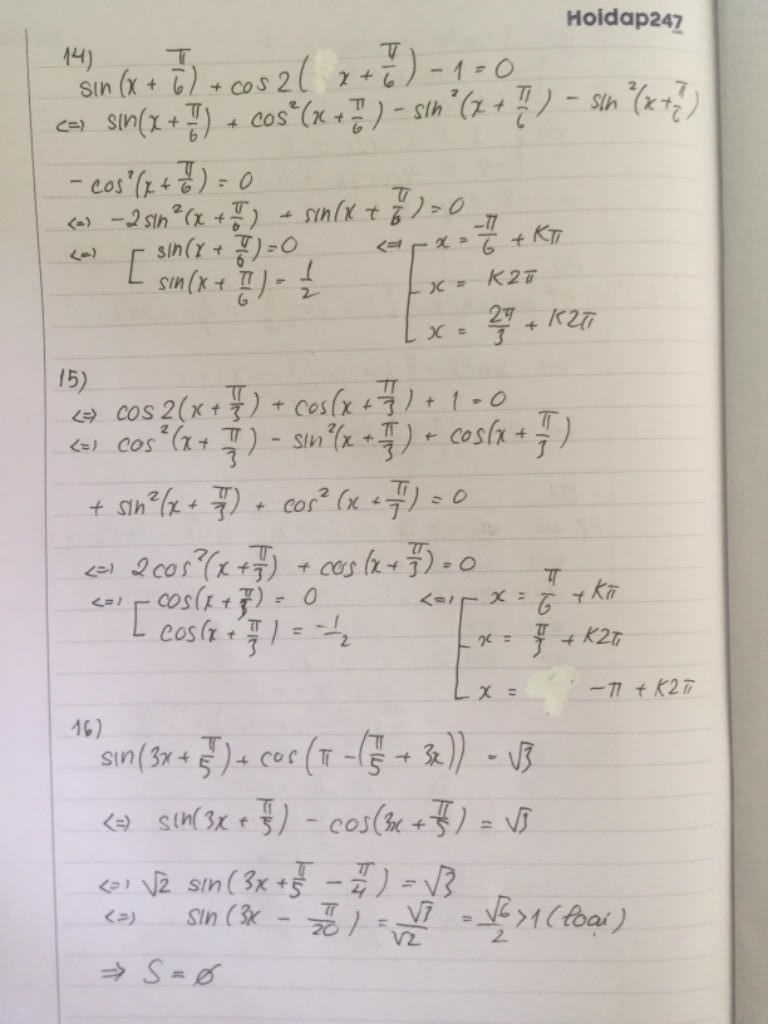 Hoidap247
14)
sin(x + π/6) + cos2( x + π/6) - 1 = 0
<=> sin(x + π/6) + cos²(x + π/6) - sin²(x + π/6) - sin²(x + π/6)
- cos²(x + π/6) = 0
<=> -2sin²(x + π/6) + sin(x + π/6) = 0
<=> [ sin(x + π/6) = 0 <=> [ x = -π/6 + Kπ
sin(x + π/6) = 1/2 x = K2π
x = 2π/3 + K2π
15)
<=> cos2(x + π/3) + cos(x + π/3) + 1 = 0
<=> cos²(x + π/3) - sin²(x + π/3) + cos(x + π/3)
+ sin²(x + π/3) + cos²(x + π/3) = 0
<=> 2cos²(x + π/3) + cos(x + π/3) = 0
<=> [ cos(x + π/3) = 0 <=> [ x = π/6 + Kπ
cos(x + π/3) = -1/2 x = π/3 + K2π
x = -π + K2π
16)
sin(3x + π/5) + cos(π - (π/5 + 3x)) = √3
<=> sin(3x + π/5) - cos(3x + π/5) = √3
<=> √2 sin(3x + π/5 - π/4) = √3
<=> sin(3x - π/20) = √3/√2 = √6/2 > 1 (loại)
=> S = ∅